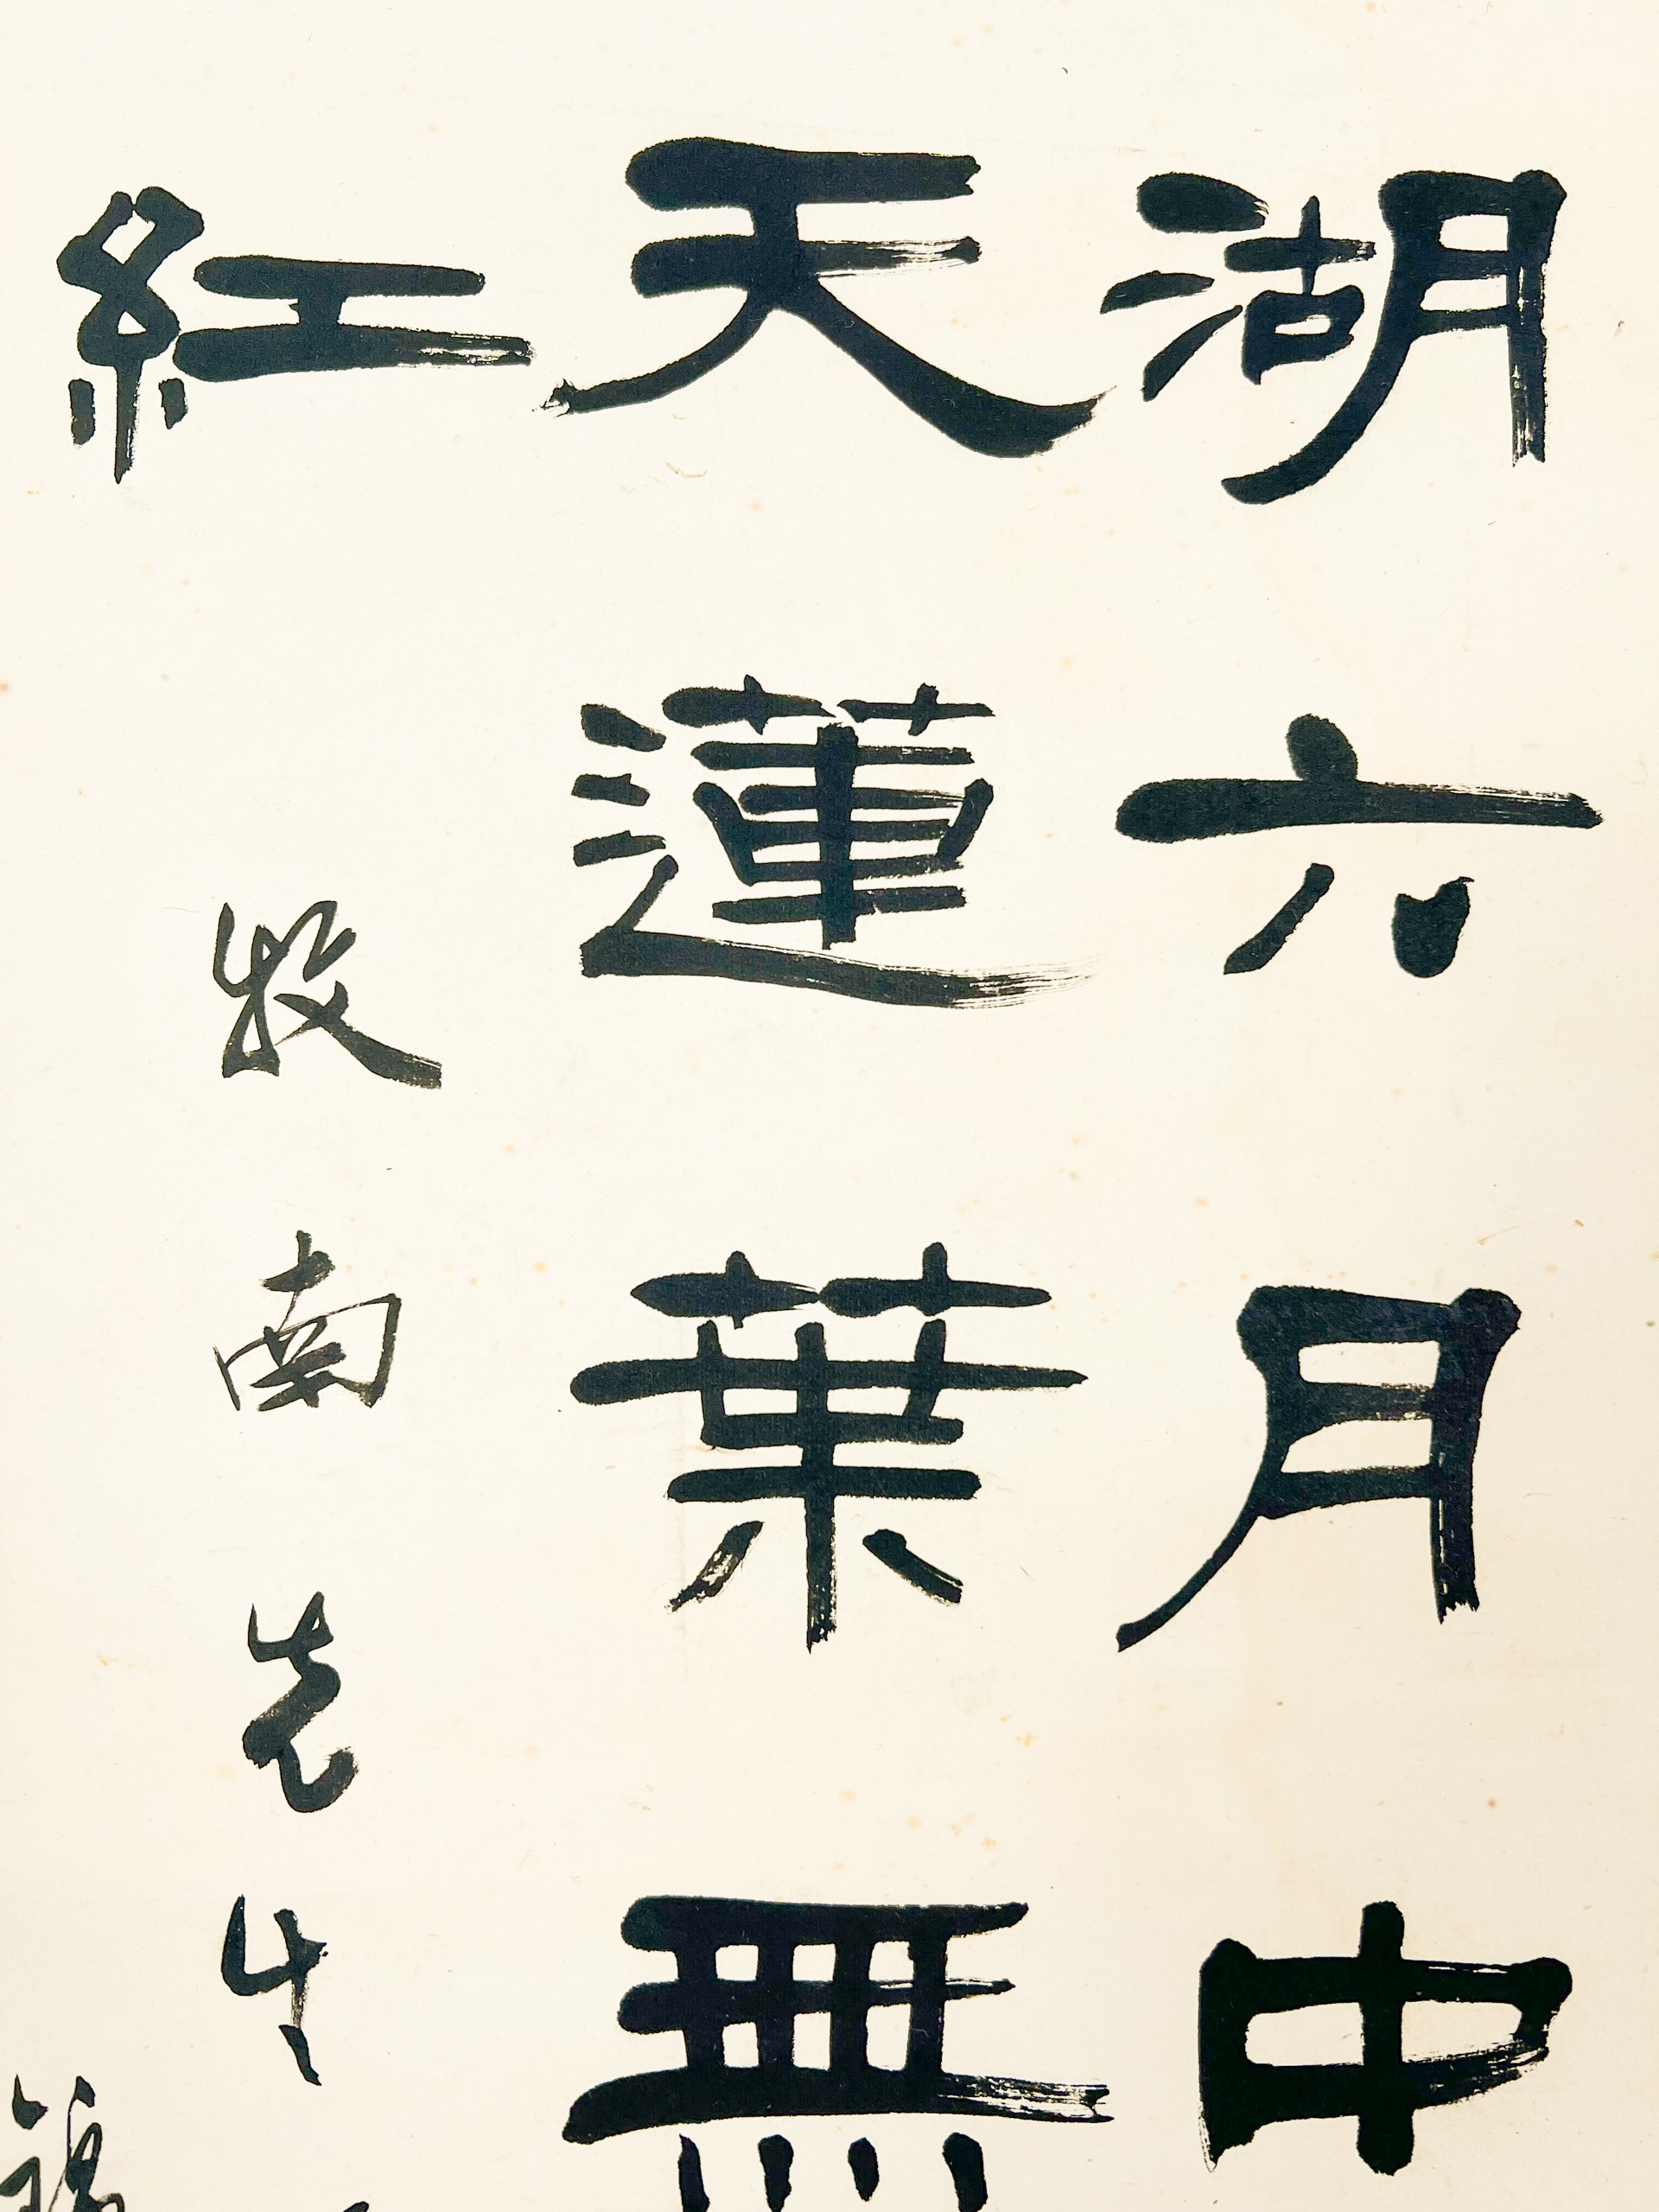 湖六月中
天蓮葉無
紅
牧南先生